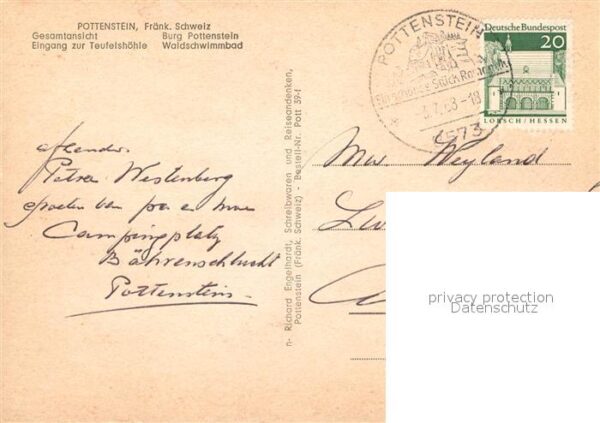 POTTENSTEIN, Fränk. Schweiz
Gesamtansicht Burg Pottenstein
Eingang zur Teufelshöhle Waldschwimmbad
POTTENSTEIN
Ein schönes Stück Romantik
8573
Deutsche Bundespost
20
LORSCH / HESSEN
n- Richard Engelhardt, Schreibwaren und Reiseandenken,
Pottenstein (Fränk. Schweiz) - Bestell-Nr. Pott 39-f
afzender
Petra Westenberg
Campingplatz
Bährenschlucht
Pottenstein
Weyland
privacy protection
Datenschutz